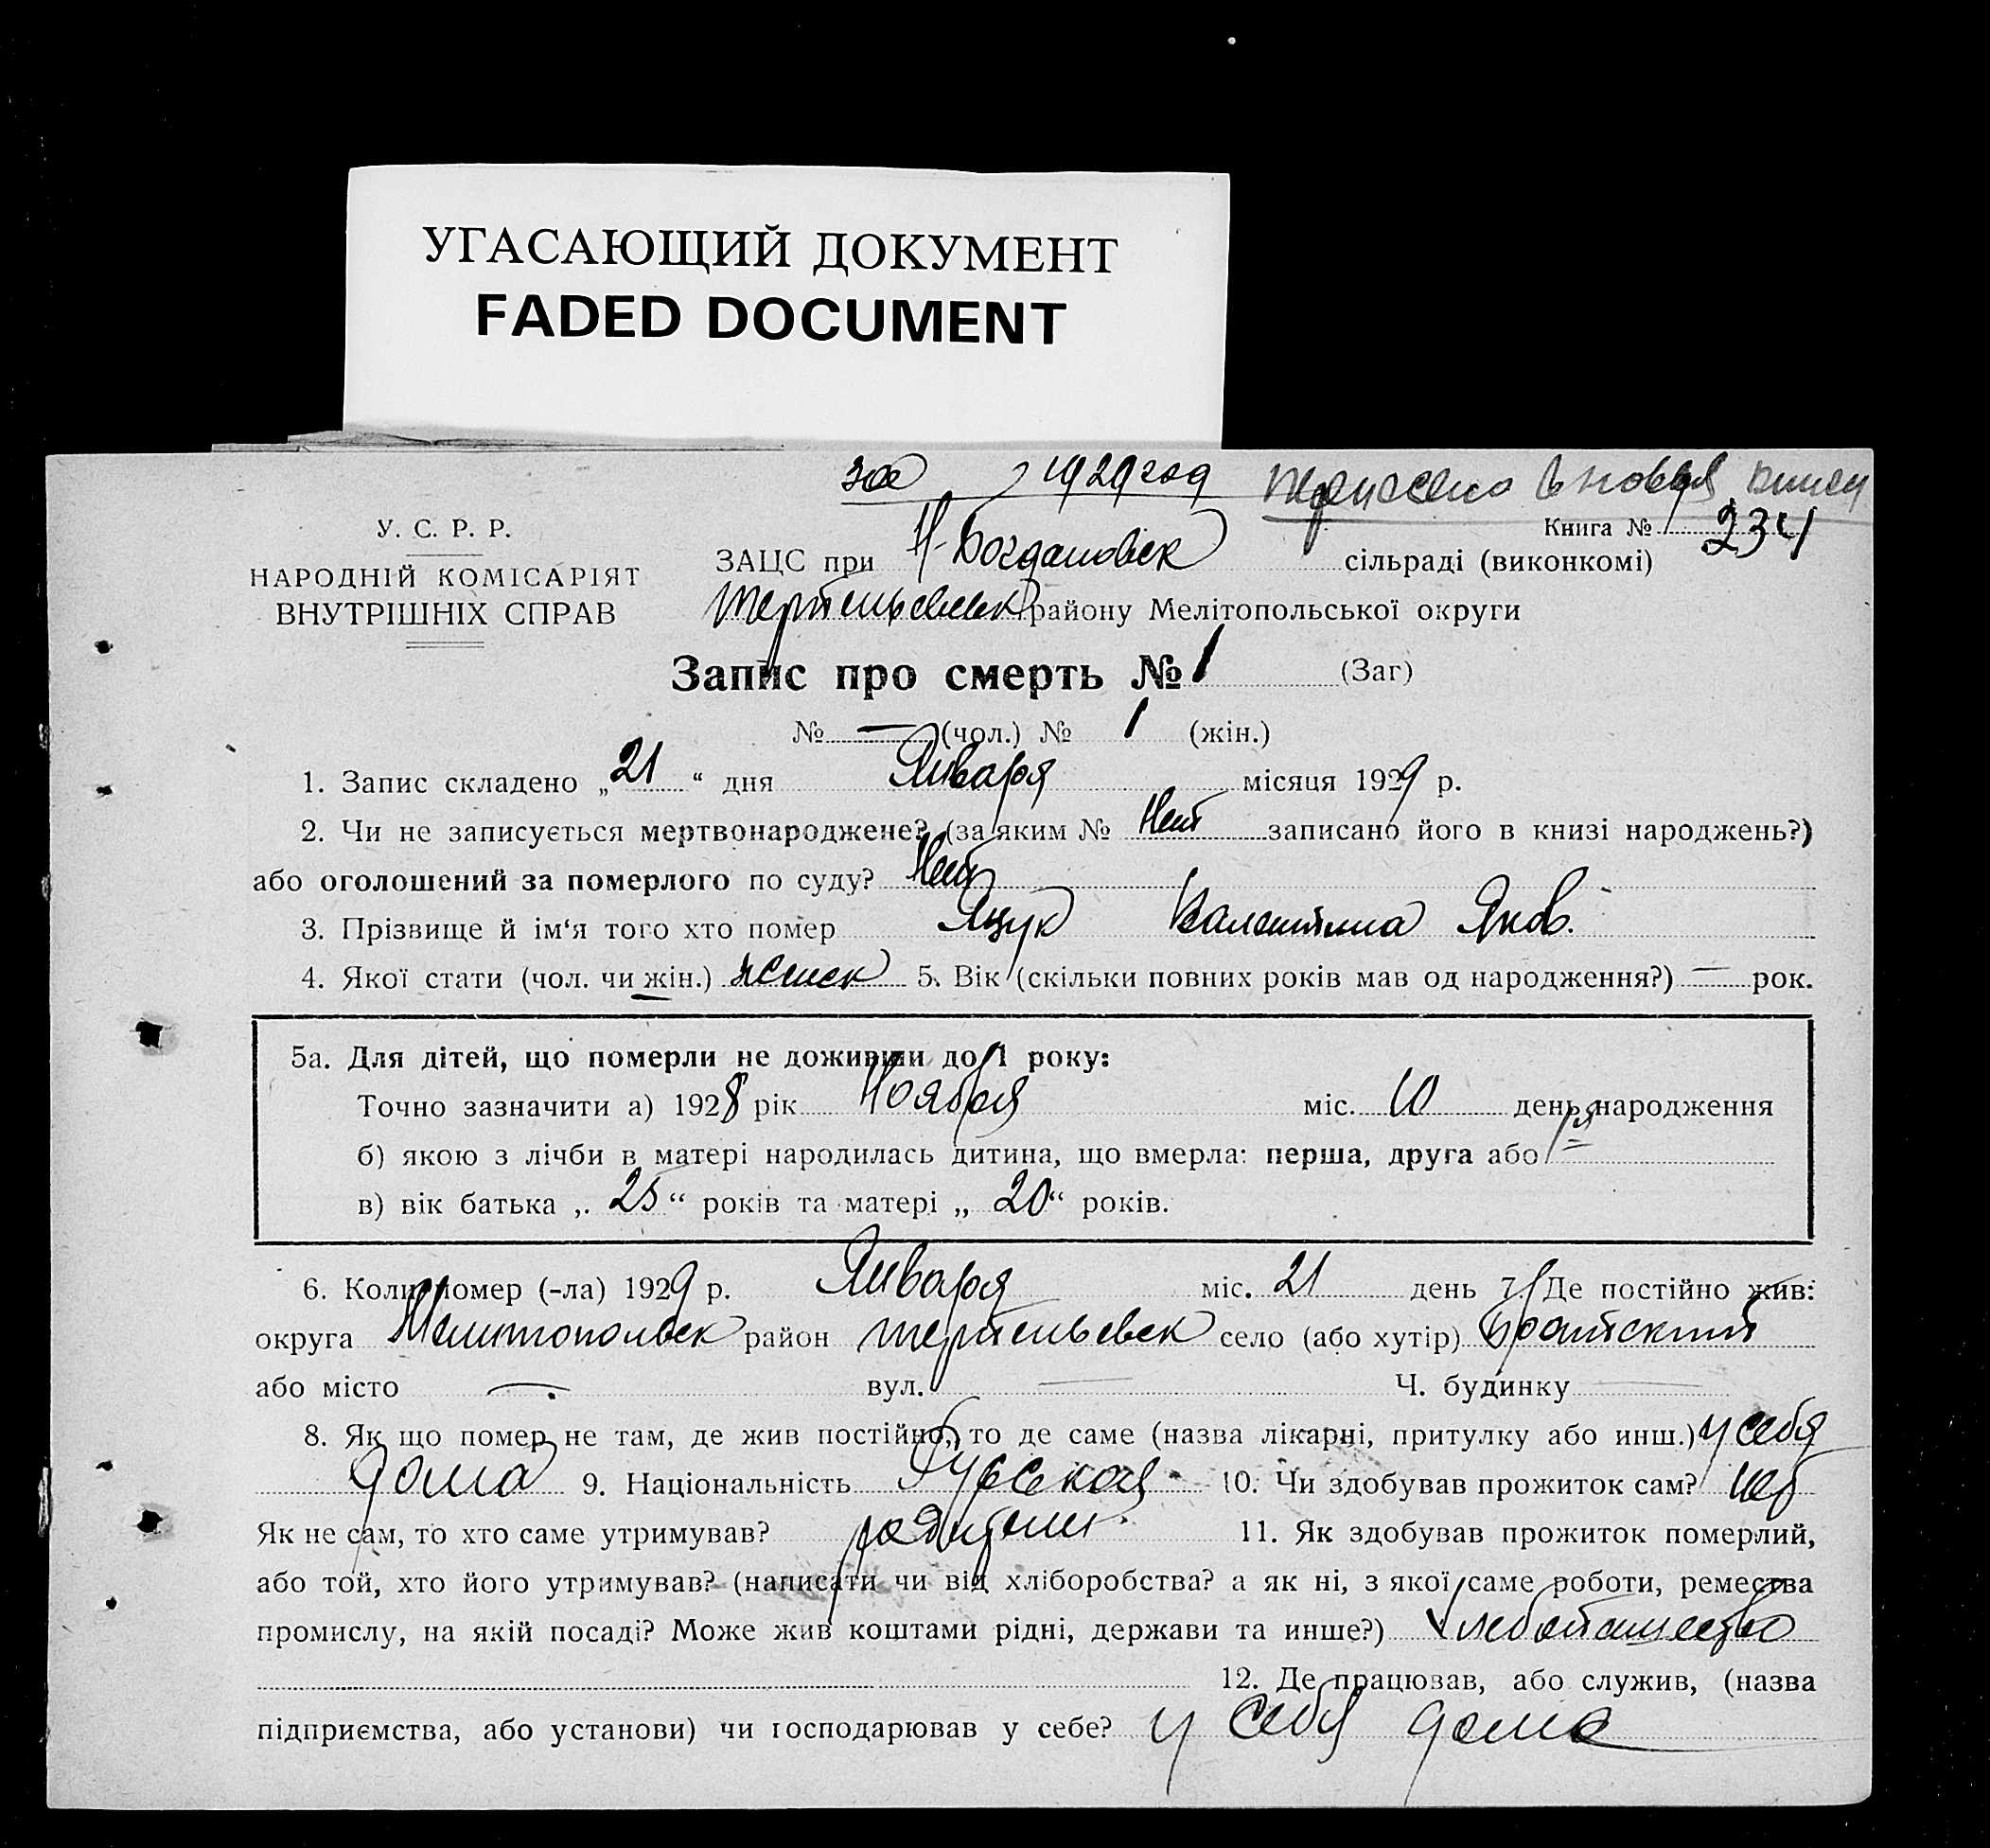 УГАСАЮЩИЙ ДОКУМЕНТ
FADED DOCUMENT
за 1929 год перенесено в новыя книги
У. С. Р. Р.
НАРОДНІЙ КОМІСАРІЯТ
ВНУТРІШНІХ СПРАВ
Книга № 234
ЗАЦС при Н-Богдановск сільраді (виконкомі)
Терпеньевск району Мелітопольської округи
Запис про смерть № 1 (Заг)
№ — (чол.) № 1 (жін.)
1. Запис складено „21“ дня Января місяця 1929 р.
2. Чи не записується мертвонароджене? (за яким № Нет записано його в книзі народжень?)
або оголошений за померлого по суду? Нет
3. Прізвище й ім‘я того хто помер Яцук Валентина Яков.
4. Якої стати (чол. чи жін.) женск 5. Вік (скільки повних років мав од народження?) — рок.
5а. Для дітей, що померли не доживши до 1 року:
Точно зазначити а) 1928 рік Ноября міс. 10 день народження
б) якою з лічби в матері народилась дитина, що вмерла: перша, друга або 1я
в) вік батька „25“ років та матері „20“ років.
6. Коли помер (-ла) 1929 р. Января міс. 21 день 7. Де постійно жив:
округа Мелитопольск район Терпеньевск село (або хутір) Братский
або місто — вул. — Ч. будинку —
8. Як що помер не там, де жив постійно, то де саме (назва лікарні, притулку або инш.) у себя
дома 9. Національність Русская 10. Чи здобував прожиток сам? нет
Як не сам, то хто саме утримував? родители 11. Як здобував прожиток померлий,
або той, хто його утримував? (написати чи від хліборобства? а як ні, з якої саме роботи, ремества
промислу, на якій посаді? Може жив коштами рідні, держави та инше?) Хлебопашество
12. Де працював, або служив, (назва
підприємства, або установи) чи господарював у себе? у себя дома